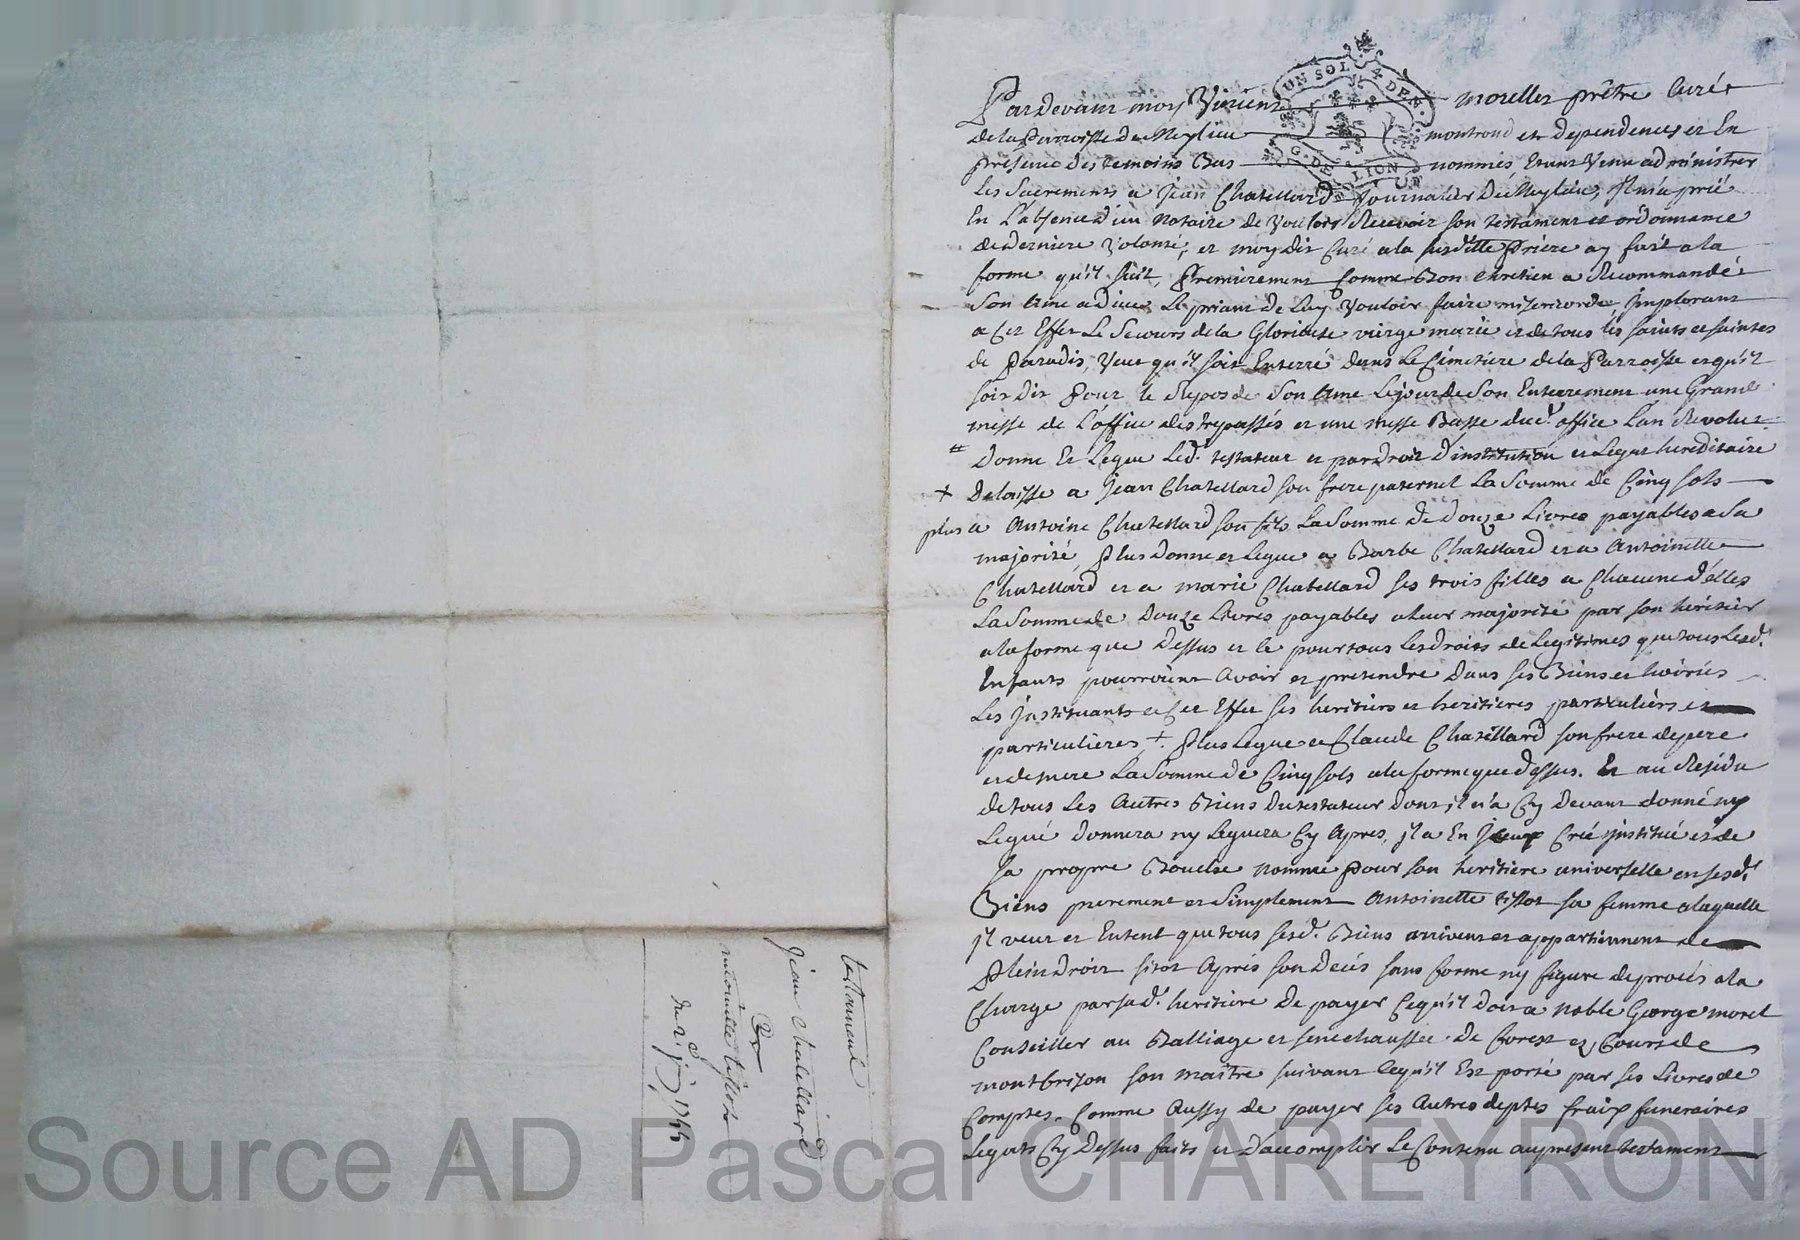 testament
jean chatellard
&
antoinette tissot
du 2e juin 1744
UN SOL 4 DEN.
G. DE LION
Pardevant moy Vincent morellet prêtre Curé
de la Parroisse de Meylieu montrond et dependences et En
presence des temoins Bas nommés Etant Venu administrer
Les Sacrements a Jean Chatellard Journalier du Meylieu, Il m'a prié
En L'absence d'un Notaire de Vouloir Recevoir son testament et ordonnance
de derniere Volonté, et moy dit Curé a la susditte Priere ay fait a la
forme qu'il suit, Premierement Comme Bon chretien a Recommandé
Son Ame a dieu Le priant de Luy Vouloir faire misericorde Implorant
a Cet Effet Le Secours de la Glorieuse vierge marie et de tous les saints et saintes
de Paradis, Veut qu'il soit Enterré dans Le Cimetiere de la Parroisse et qu'il
soit dit Pour le Repos de Son Ame Le jour de Son Enterrement une Grand
messe de L'office des trepassés et une messe Basse dud. office L'an Revolu
= Donne Et Legue Led. testateur et par droit d'institution et Legat hereditaire
+ Delaisse a Jean Chatellard son frere paternel La Somme de Cinq sols
plus a Antoine Chatellard son fils La Somme de Douze Livres payables a Sa
majorité, Plus donne et Legue a Barbe Chatellard et a Antoinette
Chatellard et a marie Chatellard ses trois filles a Chacune d'elles
La Somme de Douze Livres payables a leur majorité par son heritier
a la forme que Dessus et le pour tous Les droits de Legitimes que tous Lesd.
Enfants pourroient Avoir et pretendre Dans ses Biens et hoiries
Les Instituants a Cet Effet ses heritiers et heritieres particuliers et
particulieres +. Plus Legue a Claude Chatellard son frere de pere
et de mere La Somme de Cinq sols a la forme que dessus. Et au Residu
de tous Les Autres Biens du testateur dont il n'a Cy Devant donné ny
Legué donnera ny Leguera Cy Apres, il a En Iceux Créé institué et de
sa propre Bouche nommé Pour son heritiere universelle en sesd.
Biens purement et Simplement Antoinette tissot sa femme a laquelle
il veut et Entent que tous sesd. Biens arrivent et appartiennent de
Plein droit sitot Aprés son Decés sans forme ny figure de procés a la
Charge par sad. heritiere De payer Ce qu'il doit a Noble George moret
Conseiller au Balliage et senechaussée de forest et Cours de
montbrison son maître suivant Ce qu'il Est porté par ses Livres de
Comptes Comme Aussy de payer ses Autres deptes fraix funeraires
Legats Cy Dessus faits et D'accomplir Le Contenu au present testament
Source AD Pascal CHAREYRON